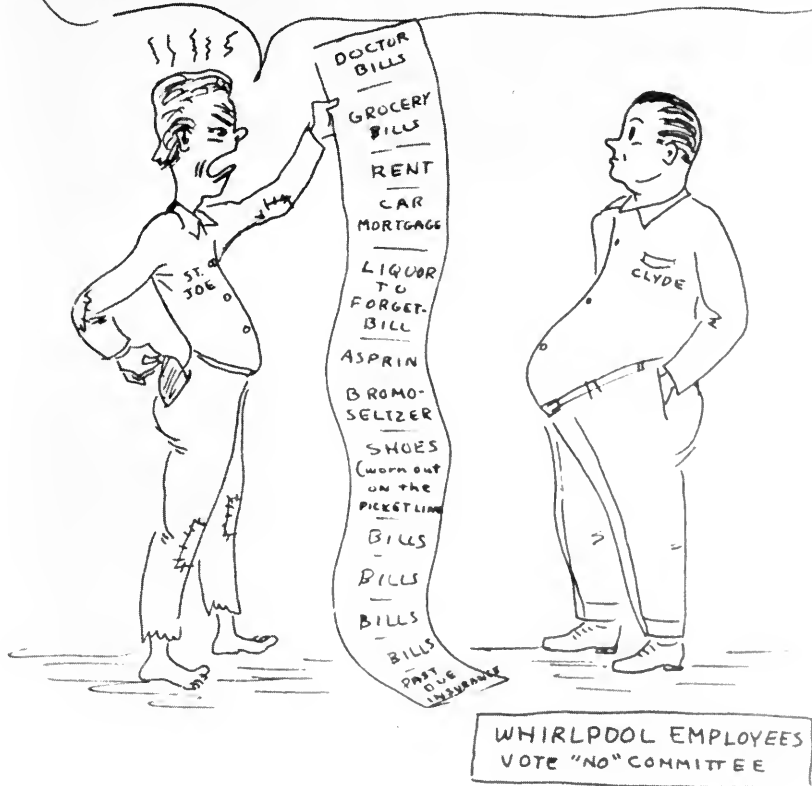 DOCTOR
BILLS
GROCERY
BILLS
RENT
CAR
MORTGAGE
LIQUOR
TO
FORGET-
BILL
ASPRIN
BROMO-
SELTZER
SHOES
(worn out
on the
PICKETLINE
BILLS
BILLS
BILLS
BILLS
PAST
DUE
INSURANCE
ST.
JOE
CLYDE
WHIRLPOOL EMPLOYEES
VOTE "NO" COMMITTEE